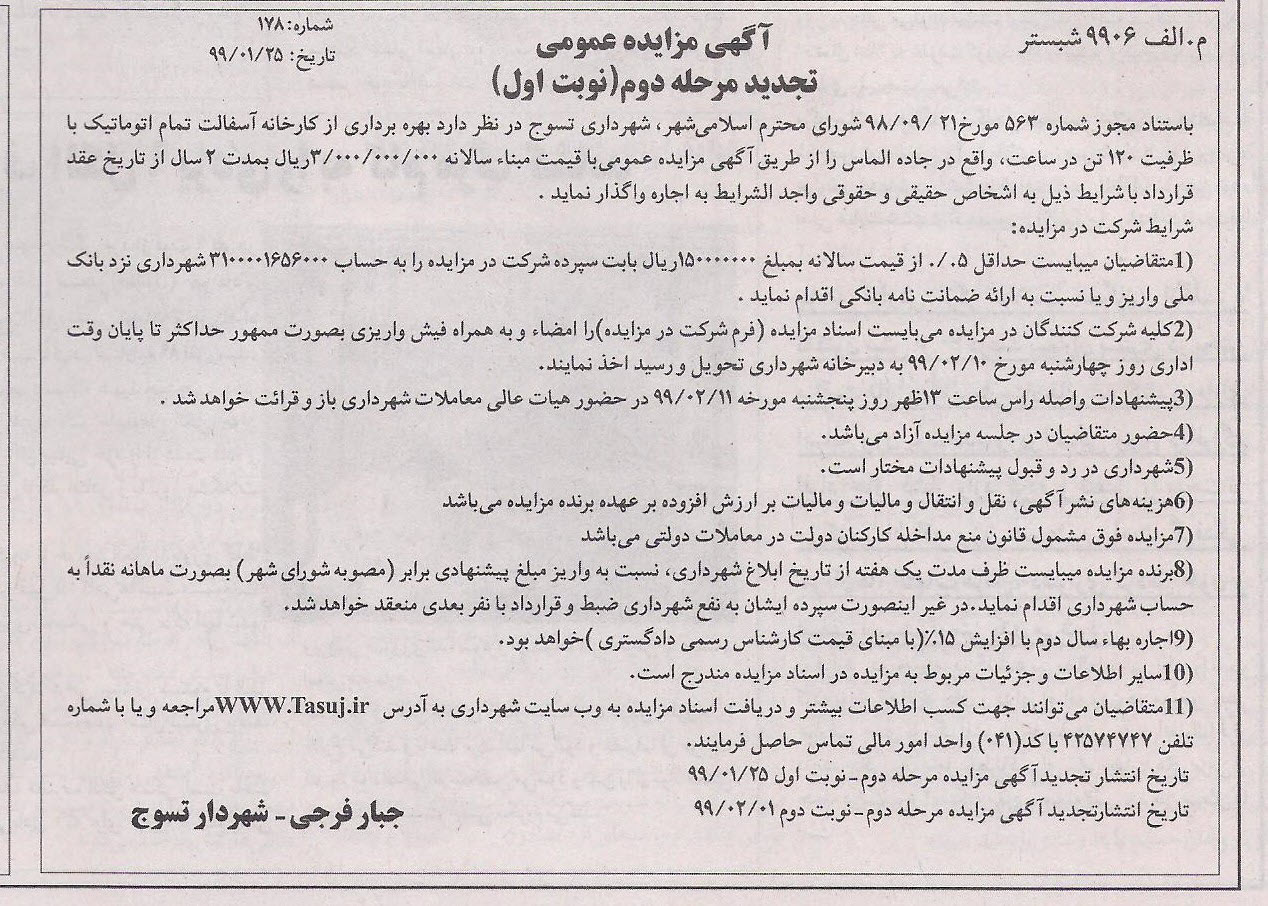 م.الف ۹۹۰۶ شبستر
شماره: ۱۷۸
تاریخ: ۹۹/۰۱/۲۵
آگهی مزایده عمومی
تجدید مرحله دوم(نوبت اول)
باستناد مجوز شماره ۵۶۳ مورخ۲۱ /۹۸/۰۹ شورای محترم اسلامی‌شهر، شهرداری تسوج در نظر دارد بهره برداری از کارخانه آسفالت تمام اتوماتیک با
ظرفیت ۱۲۰ تن در ساعت، واقع در جاده الماس را از طریق آگهی مزایده عمومی‌با قیمت مبناء سالانه ۳/۰۰۰/۰۰۰/۰۰۰ریال بمدت ۲ سال از تاریخ عقد
قرارداد با شرایط ذیل به اشخاص حقیقی و حقوقی واجد الشرایط به اجاره واگذار نماید .
شرایط شرکت در مزایده:
1)متقاضیان میبایست حداقل ۵ ./. از قیمت سالانه بمبلغ ۱۵۰۰۰۰۰۰۰ریال بابت سپرده شرکت در مزایده را به حساب ۳۱۰۰۰۰۱۶۵۶۰۰۰ شهرداری نزد بانک
ملی واریز و یا نسبت به ارائه ضمانت نامه بانکی اقدام نماید .
2)کلیه شرکت کنندگان در مزایده می‌بایست اسناد مزایده (فرم شرکت در مزایده)را امضاء و به همراه فیش واریزی بصورت ممهور حداکثر تا پایان وقت
اداری روز چهارشنبه مورخ ۹۹/۰۲/۱۰ به دبیرخانه شهرداری تحویل و رسید اخذ نمایند.
3)پیشنهادات واصله راس ساعت ۱۳ظهر روز پنجشنبه مورخه ۹۹/۰۲/۱۱ در حضور هیات عالی معاملات شهرداری باز و قرائت خواهد شد .
4)حضور متقاضیان در جلسه مزایده آزاد می‌باشد.
5)شهرداری در رد و قبول پیشنهادات مختار است.
6)هزینه‌های نشر آگهی، نقل و انتقال و مالیات و مالیات بر ارزش افزوده بر عهده برنده مزایده می‌باشد
7)مزایده فوق مشمول قانون منع مداخله کارکنان دولت در معاملات دولتی می‌باشد
8)برنده مزایده میبایست ظرف مدت یک هفته از تاریخ ابلاغ شهرداری، نسبت به واریز مبلغ پیشنهادی برابر (مصوبه شورای شهر) بصورت ماهانه نقداً به
حساب شهرداری اقدام نماید.در غیر اینصورت سپرده ایشان به نفع شهرداری ضبط و قرارداد با نفر بعدی منعقد خواهد شد.
9)اجاره بهاء سال دوم با افزایش ۱۵٪(با مبنای قیمت کارشناس رسمی دادگستری )خواهد بود.
10)سایر اطلاعات و جزئیات مربوط به مزایده در اسناد مزایده مندرج است.
11)متقاضیان می‌توانند جهت کسب اطلاعات بیشتر و دریافت اسناد مزایده به وب سایت شهرداری به آدرس WWW.Tasuj.irمراجعه و یا با شماره
تلفن ۴۲۵۷۴۷۴۷ با کد(۰۴۱) واحد امور مالی تماس حاصل فرمایند.
تاریخ انتشار تجدید آگهی مزایده مرحله دوم-نوبت اول ۹۹/۰۱/۲۵
تاریخ انتشارتجدید آگهی مزایده مرحله دوم-نوبت دوم ۹۹/۰۲/۰۱
جبار فرجی- شهردار تسوج